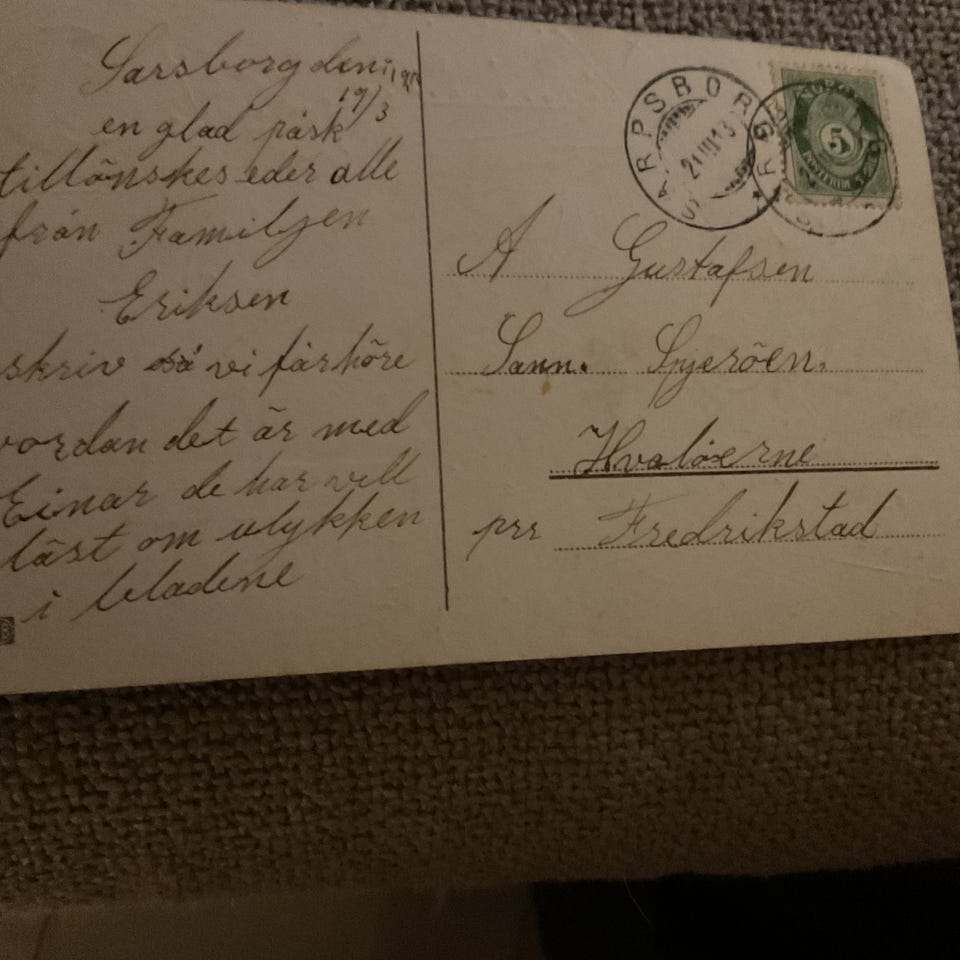 Sarsborg den
19/3
en glad påsk
tillönskes eder alle
från Familjen
Eriksen
skriv så vi får höre
vordan det är med
Einar de har vell
läst om ulykken
i bladene
SARPSBORG
21 III 13
5
A Gustafsen
Sann. Spjerøen.
Hvaløerne
prr Fredrikstad